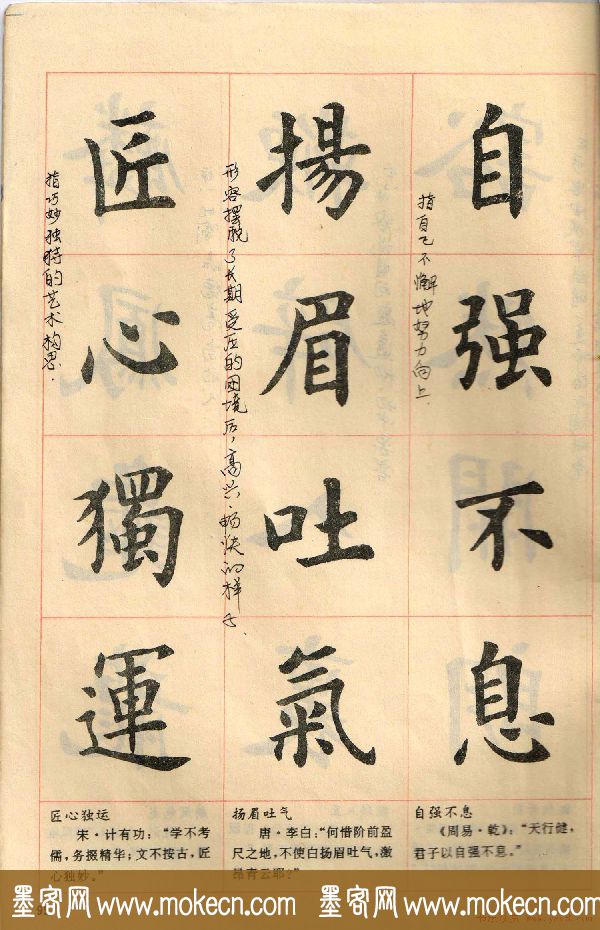 自强不息
指自己不懈地努力向上.
揚眉吐氣
形容摆脱了长期受压的困境后，高兴、畅快的样子.
匠心獨運
指巧妙独特的艺术构思.
自强不息
《周易·乾》：“天行健，
君子以自强不息。”
扬眉吐气
唐·李白：“何惜阶前盈
尺之地，不使白扬眉吐气，激
昂青云耶？”
匠心独运
宋·计有功：“学不考
儒，务掇精华；文不按古，匠
心独妙。”
墨客网 www.mokecn.com 墨客网 www.mokecn.com